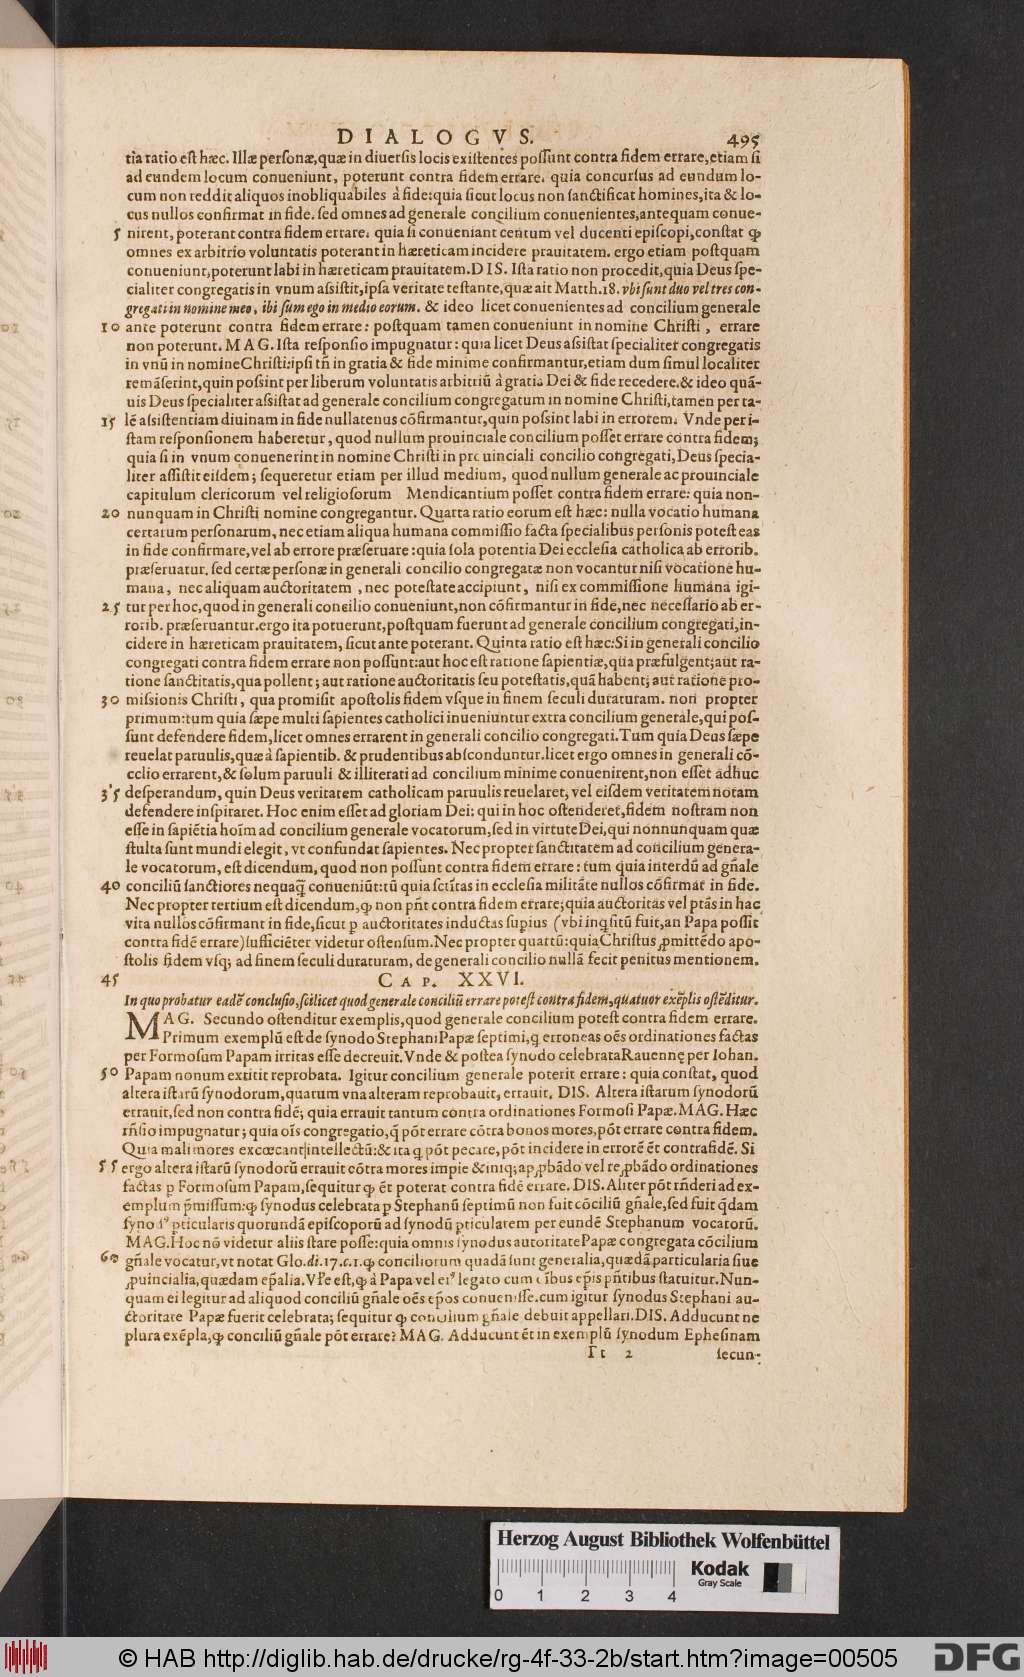 DIALOGVS. 495
tia ratio est hæc. Illæ personæ,quæ in diuersis locis existentes possunt contra fidem errare,etiam si
ad eundem locum conueniunt, poterunt contra fidem errare. quia concursus ad eundum lo-
cum non reddit aliquos inobliquabiles à fide:quia sicut locus non sanctificat homines,ita & lo-
cus nullos confirmat in fide. sed omnes ad generale concilium conuenientes,antequam conue-
5 nirent, poterant contra fidem errare. quia si conueniant centum vel ducenti episcopi,constat ꝙ
omnes ex arbitrio voluntatis poterant in hæreticam incidere prauitatem. ergo etiam postquam
conueniunt,poterunt labi in hæreticam prauitatem. DIS. Ista ratio non procedit,quia Deus spe-
cialiter congregatis in vnum assistit,ipsa veritate testante,quæ ait Matth.18. vbi sunt duo vel tres con-
gregati in nomine meo, ibi sum ego in medio eorum. & ideo licet conuenientes ad concilium generale
10 ante poterunt contra fidem errare: postquam tamen conueniunt in nomine Christi, errare
non poterunt. MAG. Ista responsio impugnatur: quia licet Deus assistat specialiter congregatis
in vnū in nomine Christi:ipsi tñ in gratia & fide minime confirmantur,etiam dum simul localiter
remāserint,quin possint per liberum voluntatis arbitriū à gratia Dei & fide recedere. & ideo quā-
uis Deus specialiter assistat ad generale concilium congregatum in nomine Christi,tamen per ta-
15 lē assistentiam diuinam in fide nullatenus cōfirmantur,quin possint labi in errorem. Vnde per i-
stam responsionem haberetur, quod nullum prouinciale concilium posset errare contra fidem;
quia si in vnum conuenerint in nomine Christi in prouinciali concilio congregati,Deus specia-
liter assistit eisdem; sequeretur etiam per illud medium, quod nullum generale ac prouinciale
capitulum clericorum vel religiosorum Mendicantium posset contra fidem errare: quia non-
20 nunquam in Christi nomine congregantur. Quarta ratio eorum est hæc: nulla vocatio humana
certarum personarum, nec etiam aliqua humana commissio facta specialibus personis potest eas
in fide confirmare, vel ab errore præseruare :quia sola potentia Dei ecclesia catholica ab errorib.
præseruatur. sed certæ personæ in generali concilio congregatæ non vocantur nisi vocatione hu-
mana, nec aliquam auctoritatem, nec potestate accipiunt, nisi ex commissione humana igi-
25 tur per hoc,quod in generali concilio conueniunt,non cōfirmantur in fide,nec necessario ab er-
rorib. præseruantur.ergo ita potuerunt,postquam fuerunt ad generale concilium congregati,in-
cidere in hæreticam prauitatem, sicut ante poterant. Quinta ratio est hæc:Si in generali concilio
congregati contra fidem errare non possunt:aut hoc est ratione sapientiæ,qua præfulgent;aut ra-
tione sanctitatis,qua pollent; aut ratione auctoritatis seu potestatis,quā habent; aut ratione pro-
30 missionis Christi, qua promisit apostolis fidem vsque in finem seculi duraturam. non propter
primum:tum quia sæpe multi sapientes catholici inueniuntur extra concilium generale,qui pos-
sunt defendere fidem,licet omnes errarent in generali concilio congregati.Tum quia Deus sæpe
reuelat paruulis,quæ à sapientib. & prudentibus absconduntur.licet ergo omnes in generali cō-
cilio errarent,& solum paruuli & illiterati ad concilium minime conuenirent,non esset adhuc
35 desperandum, quin Deus veritatem catholicam paruulis reuelaret, vel eisdem veritatem notam
defendere inspiraret. Hoc enim esset ad gloriam Dei: qui in hoc ostenderet,fidem nostram non
esse in sapiētia hoīm ad concilium generale vocatorum,sed in virtute Dei,qui nonnunquam quæ
stulta sunt mundi elegit, vt confundat sapientes. Nec propter sanctitatem ad concilium genera-
le vocatorum, est dicendum, quod non possunt contra fidem errare: tum quia interdū ad gñale
40 conciliū sanctiores nequaq̃ conueniūt:tū quia sctītas in ecclesia militāte nullos cōfirmat in fide.
Nec propter tertium est dicendum,ꝙ non pñt contra fidem errare;quia auctoritas vel ptās in hac
vita nullos cōfirmant in fide,sicut ꝑ auctoritates inductas supius (vbi inq̃sitū fuit,an Papa possit
contra fidē errare) sufficiēter videtur ostensum. Nec propter quartū:quia Christus ꝓmittēdo apo-
stolis fidem vsq; ad finem seculi duraturam, de generali concilio nullā fecit penitus mentionem.
45 CAP. XXVI.
In quo probatur eadē conclusio,scilicet quod generale conciliū errare potest contra fidem,quatuor exēplis ostēditur.
MAG. Secundo ostenditur exemplis,quod generale concilium potest contra fidem errare.
Primum exemplū est de synodo Stephani Papæ septimi,q̃ erroneas oēs ordinationes factas
per Formosum Papam irritas esse decreuit. Vnde & postea synodo celebrata Rauennę per Iohan.
50 Papam nonum extitit reprobata. Igitur concilium generale poterit errare: quia constat, quod
altera istarū synodorum, quarum vna alteram reprobauit, errauit. DIS. Altera istarum synodorū
errauit,sed non contra fidē; quia errauit tantum contra ordinationes Formosi Papæ. MAG. Hæc
rñsio impugnatur; quia oīs congregatio,q̃ pōt errare cōtra bonos mores,pōt errare contra fidem.
Quia mali mores excœcant intellectū:& ita q̃ pōt pecare, pōt incidere in errorē ēt contra fidē. Si
55 ergo altera istarū synodorū errauit cōtra mores impie & iniq; apꝓbādo vel reꝓbādo ordinationes
factas ꝑ Formosum Papam,sequitur ꝙ ēt poterat contra fidē errare. DIS. Aliter pōt rñderi ad ex-
emplum p̄missum:ꝙ synodus celebrata ꝑ Stephanū septimū non fuit cōciliū gñale,sed fuit q̃dam
syno dꝰ ꝑticularis quorundā episcoporū ad synodū ꝑticularem per eundē Stephanum vocatorū.
MAG. Hoc nō videtur aliis stare posse:quia omnis synodus autoritate Papæ congregata cōcilium
60 gñale vocatur,vt notat Glo.di.17.c.1.ꝙ conciliorum quædā sunt generalia,quædā particularia siue
ꝓuincialia,quædam ep̃alia. Vr̃e est,ꝙ à Papa vel eiꝰ legato cum oībus ep̃is pñtibus statuitur. Nun-
quam ei legitur ad aliquod conciliū gñale oēs ep̃os conuenisse. cum igitur synodus Stephani au-
ctoritate Papæ fuerit celebrata; sequitur ꝙ concilium gñale debuit appellari. DIS. Adducunt ne
plura exēpla,ꝙ conciliū gñale pōt errare? MAG. Adducunt ēt in exemplū synodum Ephesinam
Tt 2 secun-
Herzog August Bibliothek Wolfenbüttel
Kodak
Gray Scale
0 1 2 3 4
© HAB http://diglib.hab.de/drucke/rg-4f-33-2b/start.htm?image=00505
DFG